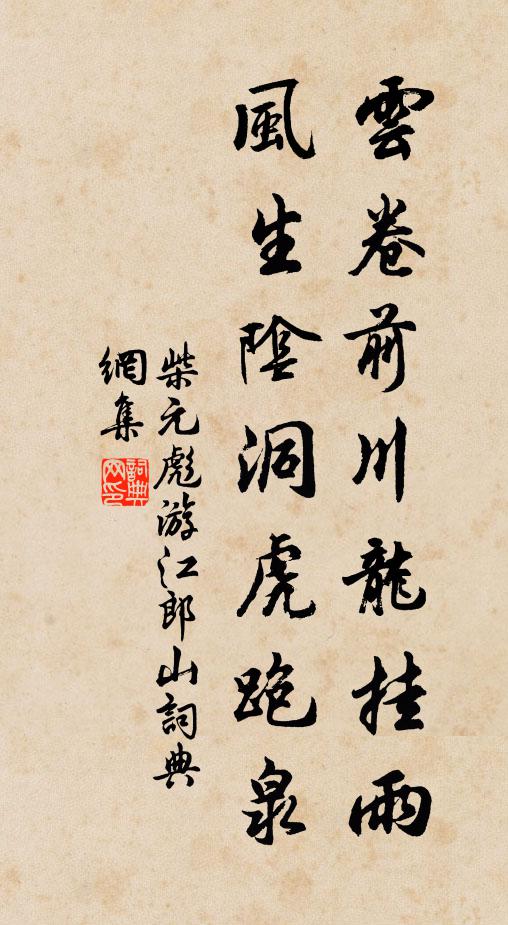 雲卷前川龍挂雨
風生陰洞虎跑泉
柴元彪游江郎山詞典
網集
詞典
网印